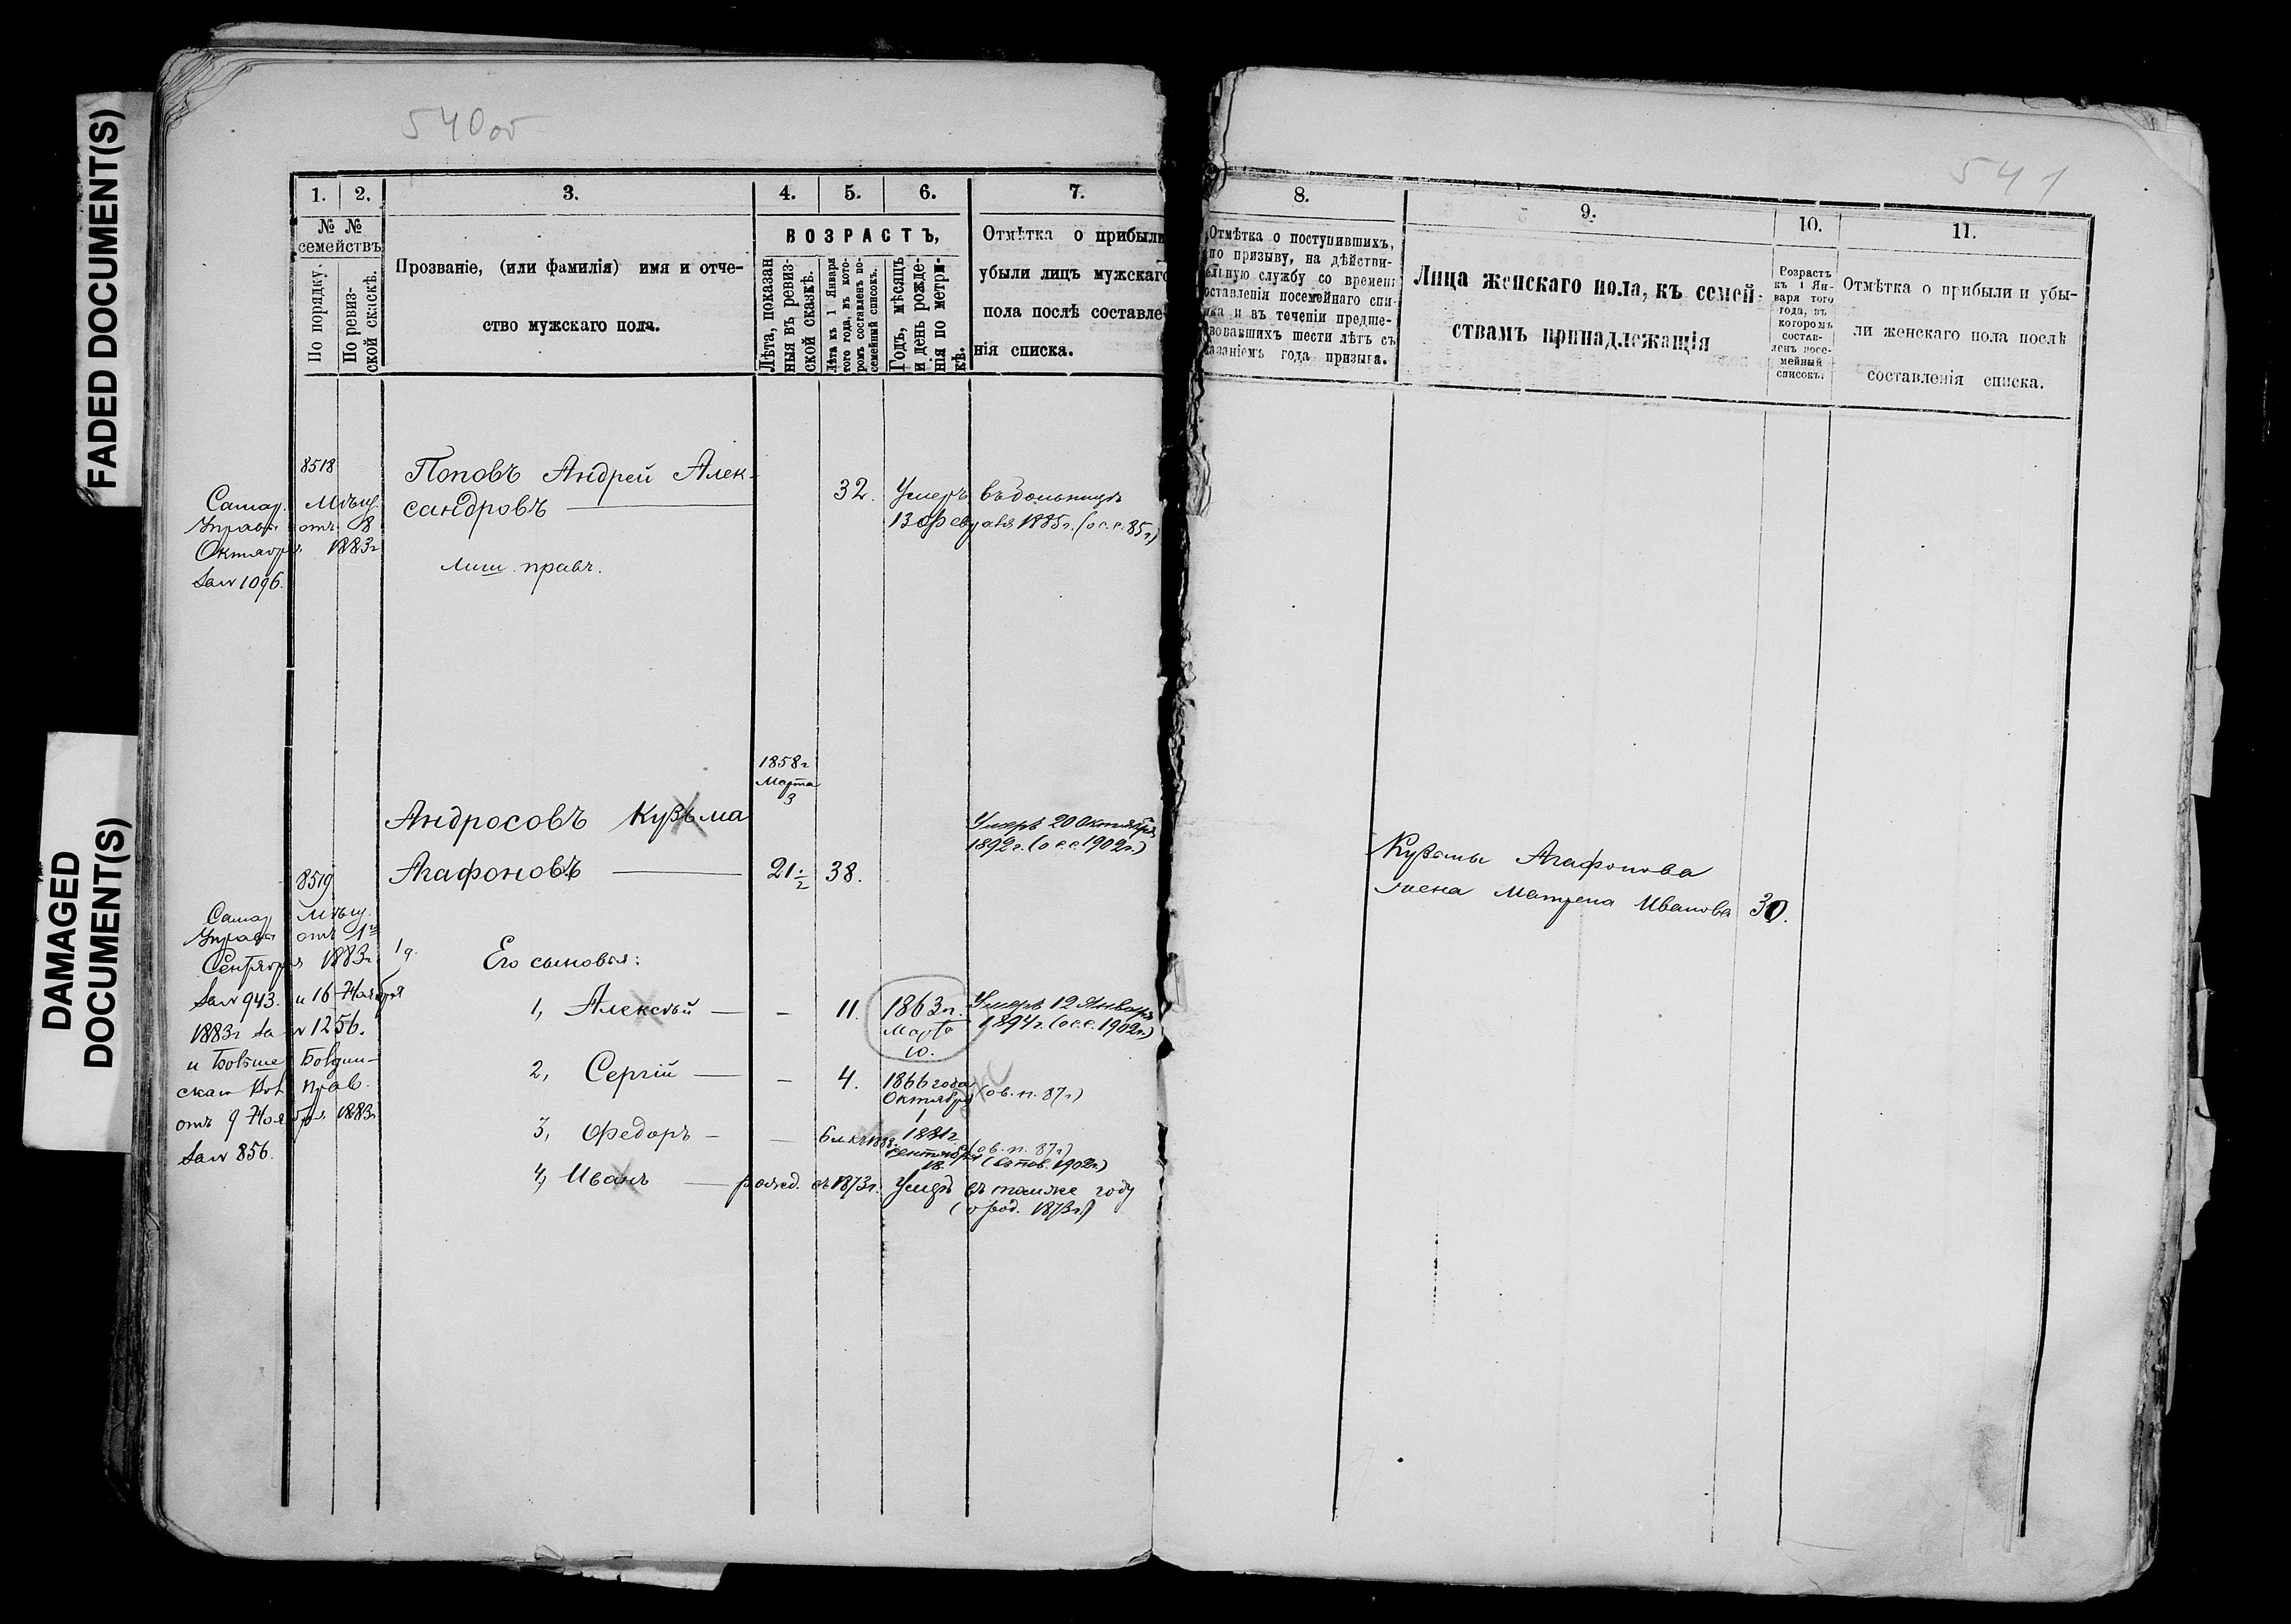 FADED DOCUMENT(S)
DAMAGED
DOCUMENT(S)
540об
1.
2.
3.
4.
5.
6.
7.
№ №
семействъ
По порядку.
По ревиз-
ской сказкѣ.
Прозваніе, (или фамилія) имя и отче-
ство мужскаго пола.
ВОЗРАСТЪ,
Лѣта, показан
ныя въ ревиз-
ской сказкѣ.
Лѣта къ 1 Января
того года, въ кото-
ромъ составленъ по-
семейный списокъ.
Годъ, мѣсяцъ
и день рожде-
нія по метри-
кѣ.
Отмѣтка о прибыли
убыли лицъ мужскаго
пола послѣ составле-
нія списка.
8518
Поповъ Андрей Алек-
сандровъ
лиш. правъ.
Самар. Мѣщ.
Управы отъ 8
Октября 1883г
за № 1096.
32.
Умеръ въ больницѣ
13 февраля 1885г. (о с.с. 85г)
1858г
Марта
3
Андросовъ Кузьма
Агафоновъ
8519
21 ½
38.
Умеръ 20 Октября
1892г. (о с.с. 1902г.)
Самар Мѣщ.
Управа отъ 1го
Сентября 1883г.
за № 943. и 16 Ноября
1883г за № 1256.
отъ 9 Ноября 1883г.
за № 856.
Его сыновья:
1, Алексѣй
11.
1863г.
Марта
10.
Умеръ 12 Января
1894г. (о с.с. 1902г.)
2, Сергій
4.
1866 года
Октября
1
(ов. п. 87г)
3, Федоръ
1881г.
Сентября
18.
(ов. п. 87г)
4, Иванъ
рожд. въ 1873г. Умеръ въ томже году
541
8.
9.
10.
11.
Отмѣтка о поступившихъ,
по призыву, на дѣйстви-
ельную службу со времени
оставленія посемейнаго спи-
ка и въ теченіи предше-
вовавшихъ шести лѣтъ съ
казаніемъ года призыва.
Лица женскаго пола, къ семей-
ствамъ принадлежащія
Возрастъ
къ 1 Ян-
варя того
года, въ
которомъ
состав-
ленъ посе-
мейный
списокъ.
Отмѣтка о прибыли и убы-
ли женскаго пола послѣ
составленія списка.
Кузьмы Агафонова
жена Матрена Иванова 30.